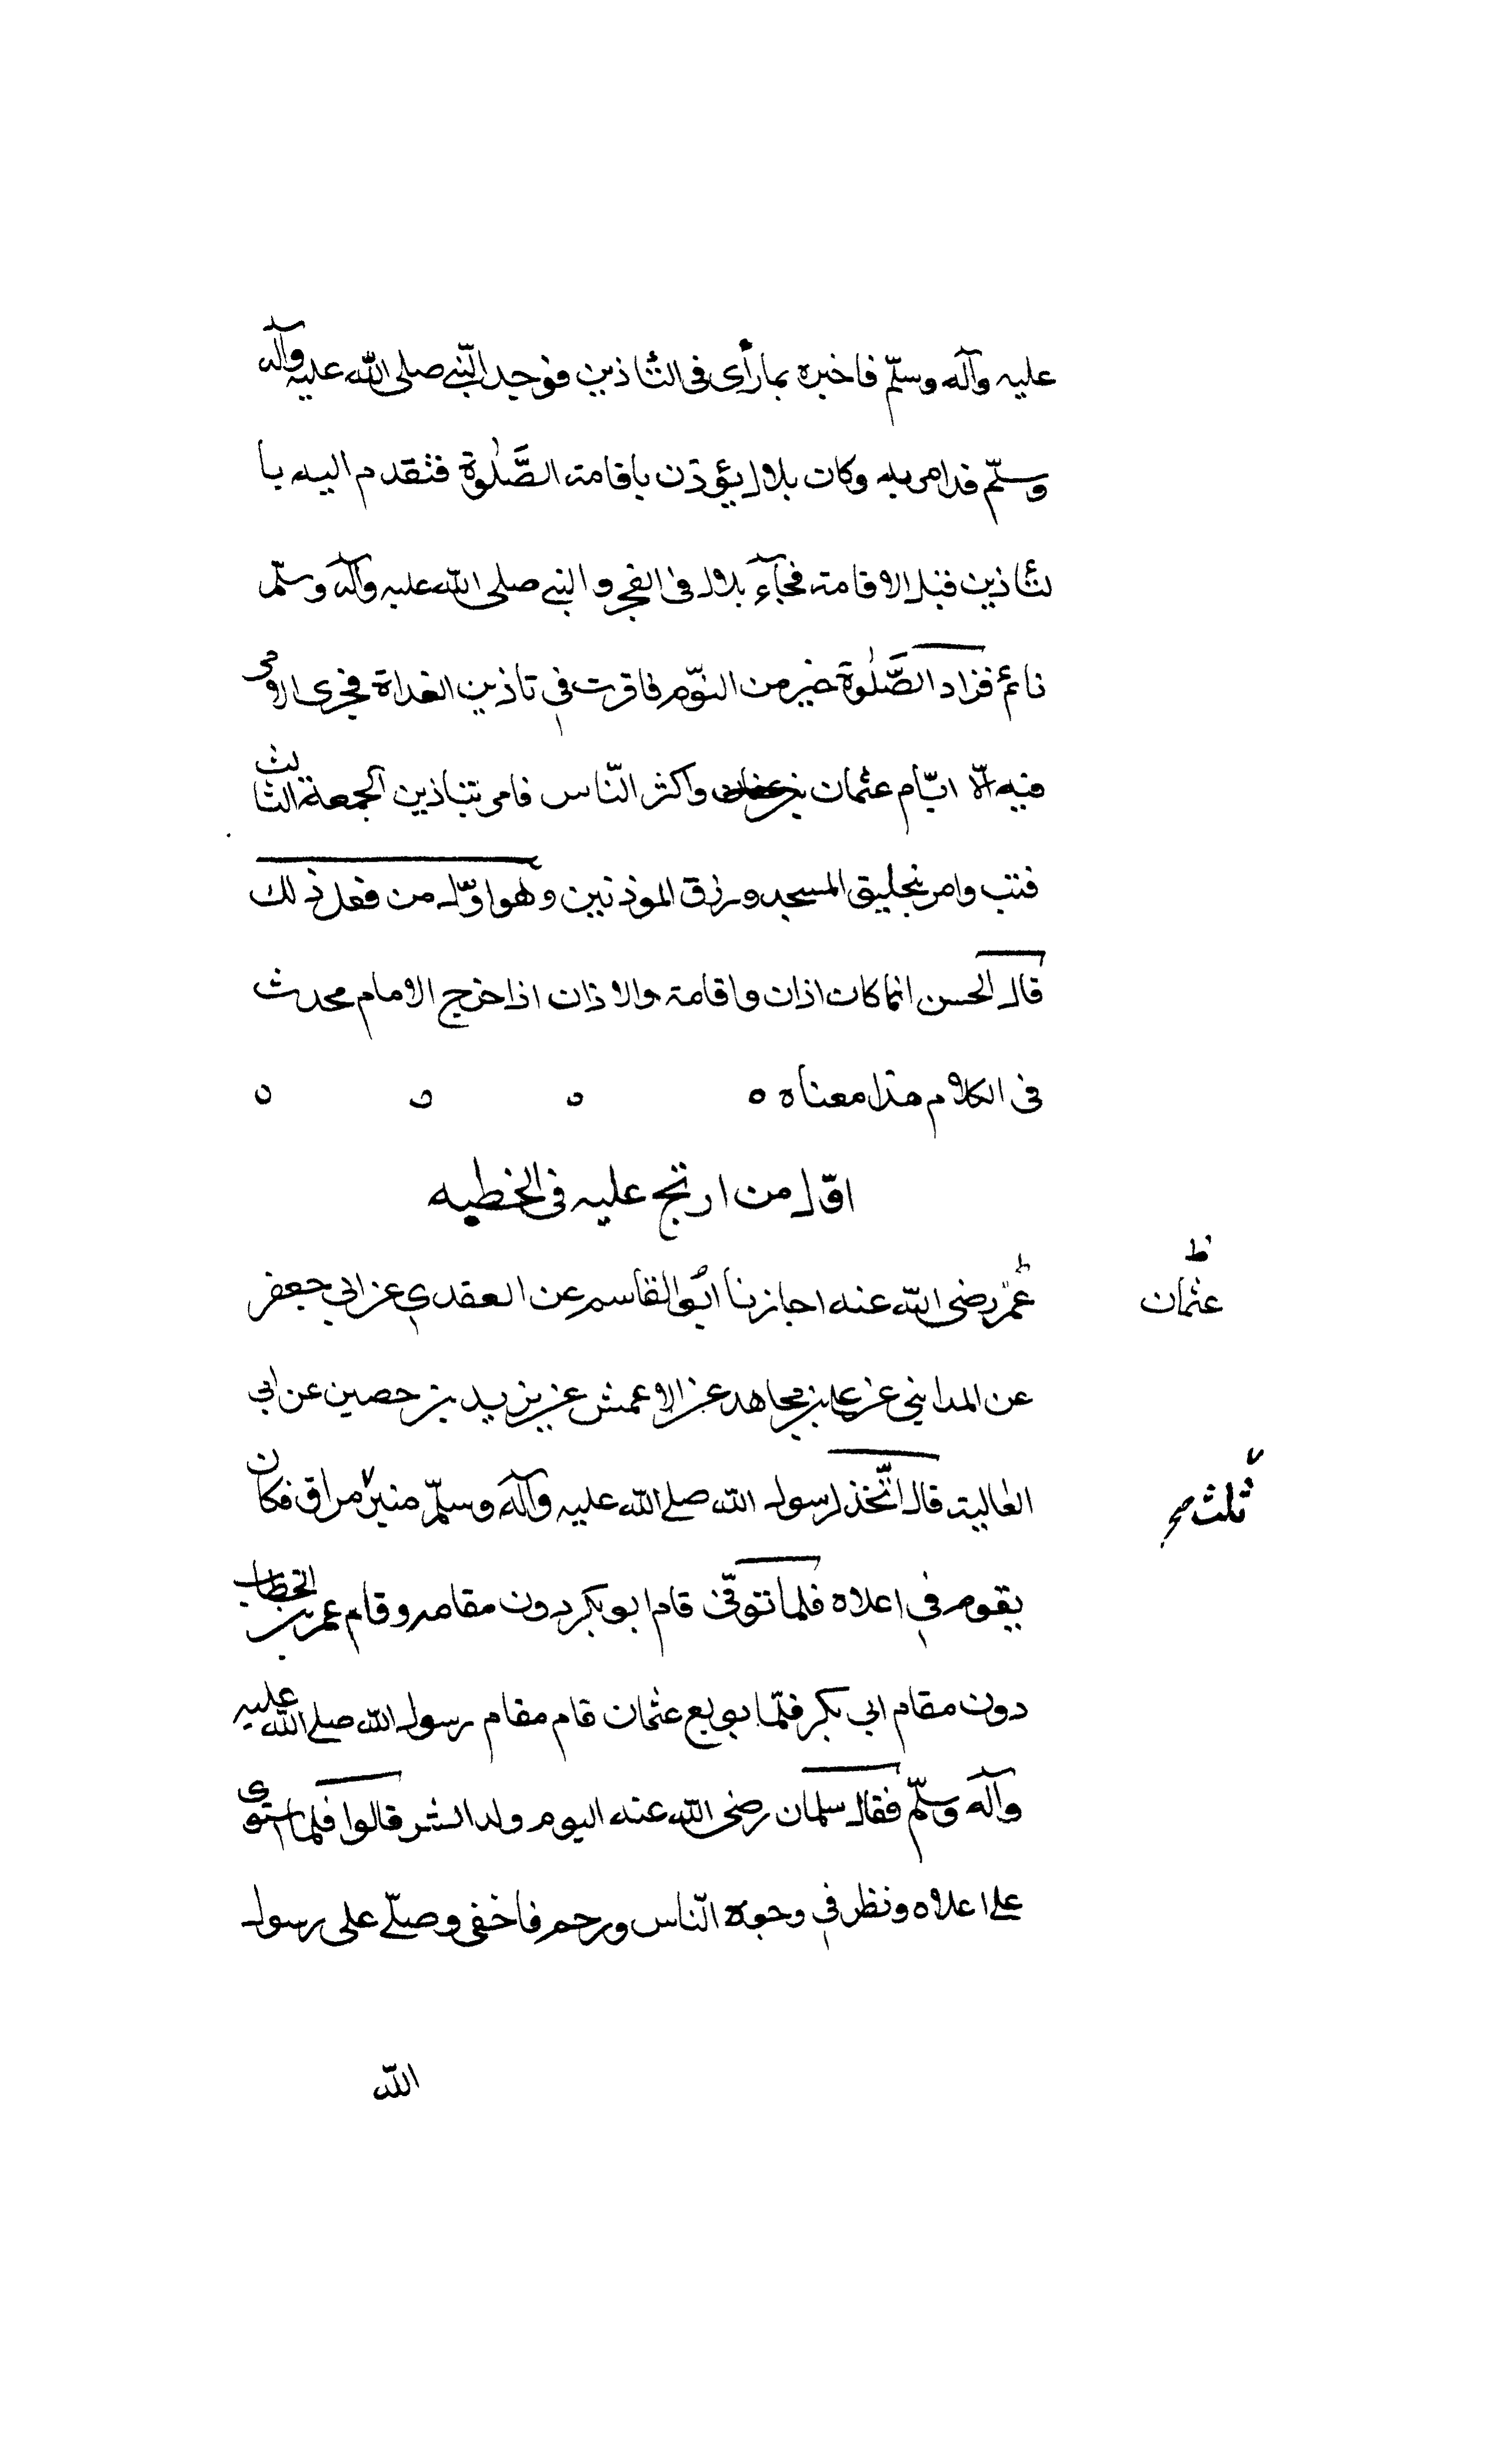 عليه وآله وسلّم فاخبره بما رأى فى التأذين فوجد النّبى صلى الله عليه وآله
وسلّم قد امر به وكان بلال يؤذن باقامة الصّلوة فتقدم اليه با
لتأذين قبل الاقامة فجآء بلال فى الفجر والنبى صلى الله عليه وآله وسلّم
نائم فزاد الصّلوة خير من النوّم فاقرت فى تاذين الغداة فجرى الامر
فيه الّا ايّام عثمان بن عفان واكثر النّاس فامر بتاذين الجمعة الثالث
فثبت وامر بتخليق المسجد ورزق الموذنين وهو اوّل من فعل ذلك
قال الحسن انما كان اذان واقامة والاذان اذا خرج الامام محدث
فى الكلام هذا معناه ٥ ٥ ٥ ٥
اوّل من ارتج عليه فى الخطبه
عمر رضى الله عنه اجازنا ابو القاسم عن العقدي عن ابى جعفر
ظ
عثمان
عن المدايني عن على بن مجاهد عن الاعمش عن يزيد بن حصين عن ابى
العالية قال اتّخذ لرسول الله صلى الله عليه وآله وسلّم منبر مراق فكان
ثلث صح
يقوم فى اعلاه فلما توفّى قام ابو بكر دون مقامه وقام عمر بن الخطاب
دون مقام ابى بكر فلمّا بويع عثمان قام مقام رسول الله صلى الله عليه
وآله وسلّم فقال سلمان رضى الله عنه اليوم ولد الشر قالوا فلما استوى
على اعلاه ونظر فى وجوه النّاس ورحم فاخفى وصلّى على رسول
الله